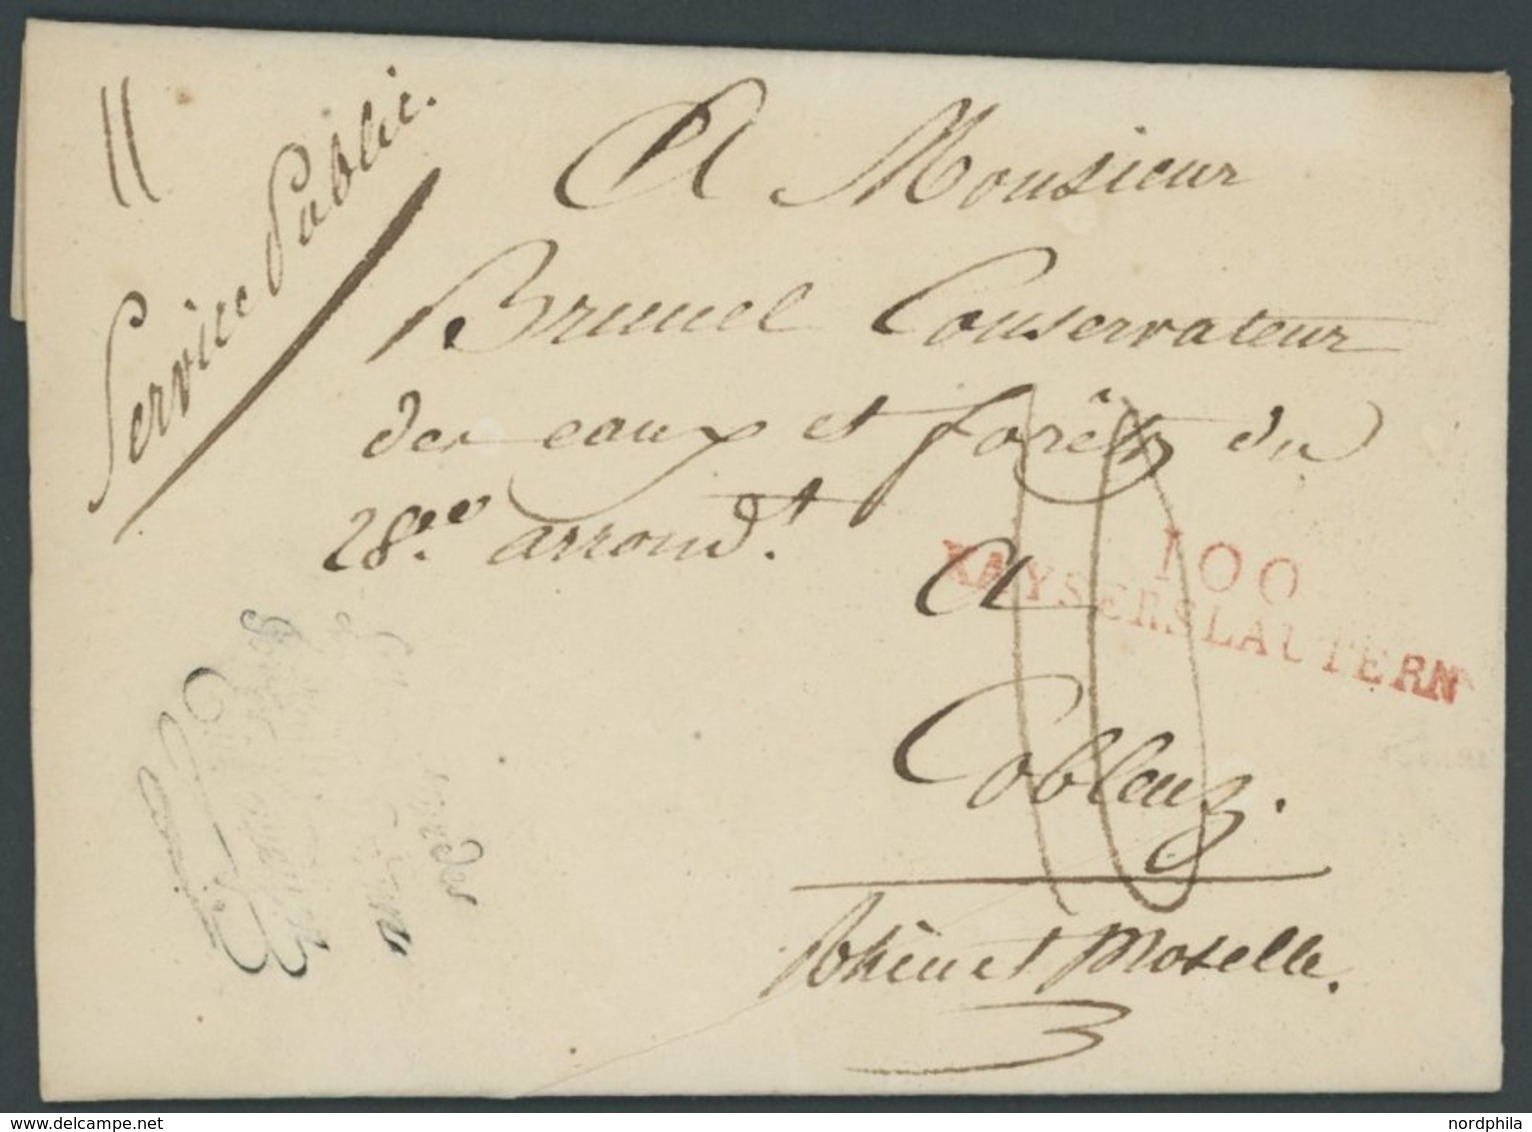 Service Public.
A Monsieur
Brunel Conservateur
des eaux et forêts du
28.e arrond.t
100
KAYSERSLAUTERN
A
Coblenz.
Rhin et Moselle.
10
nordphila